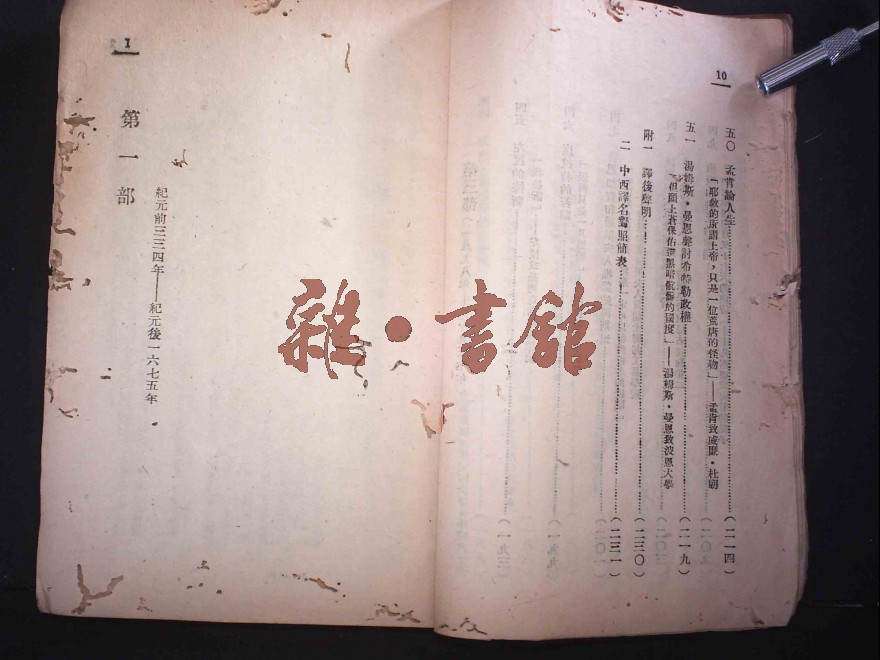 10
五〇 孟肯論人生……(二一四)
「耶敎的所謂上帝，只是一位荒唐的怪物」——孟肯致威廉·杜蘭
五一 湯姆斯·曼恩聲討希特勒政權……(二一九)
「但願上蒼保佑黑暗 的國度」——湯姆斯·曼恩致波恩大學
附一 譯後聲明……(二三〇)
二 中西譯名對照簡表……(二三一)
1
第一部
紀元前三三四年——紀元後一六七五年
雜·書館